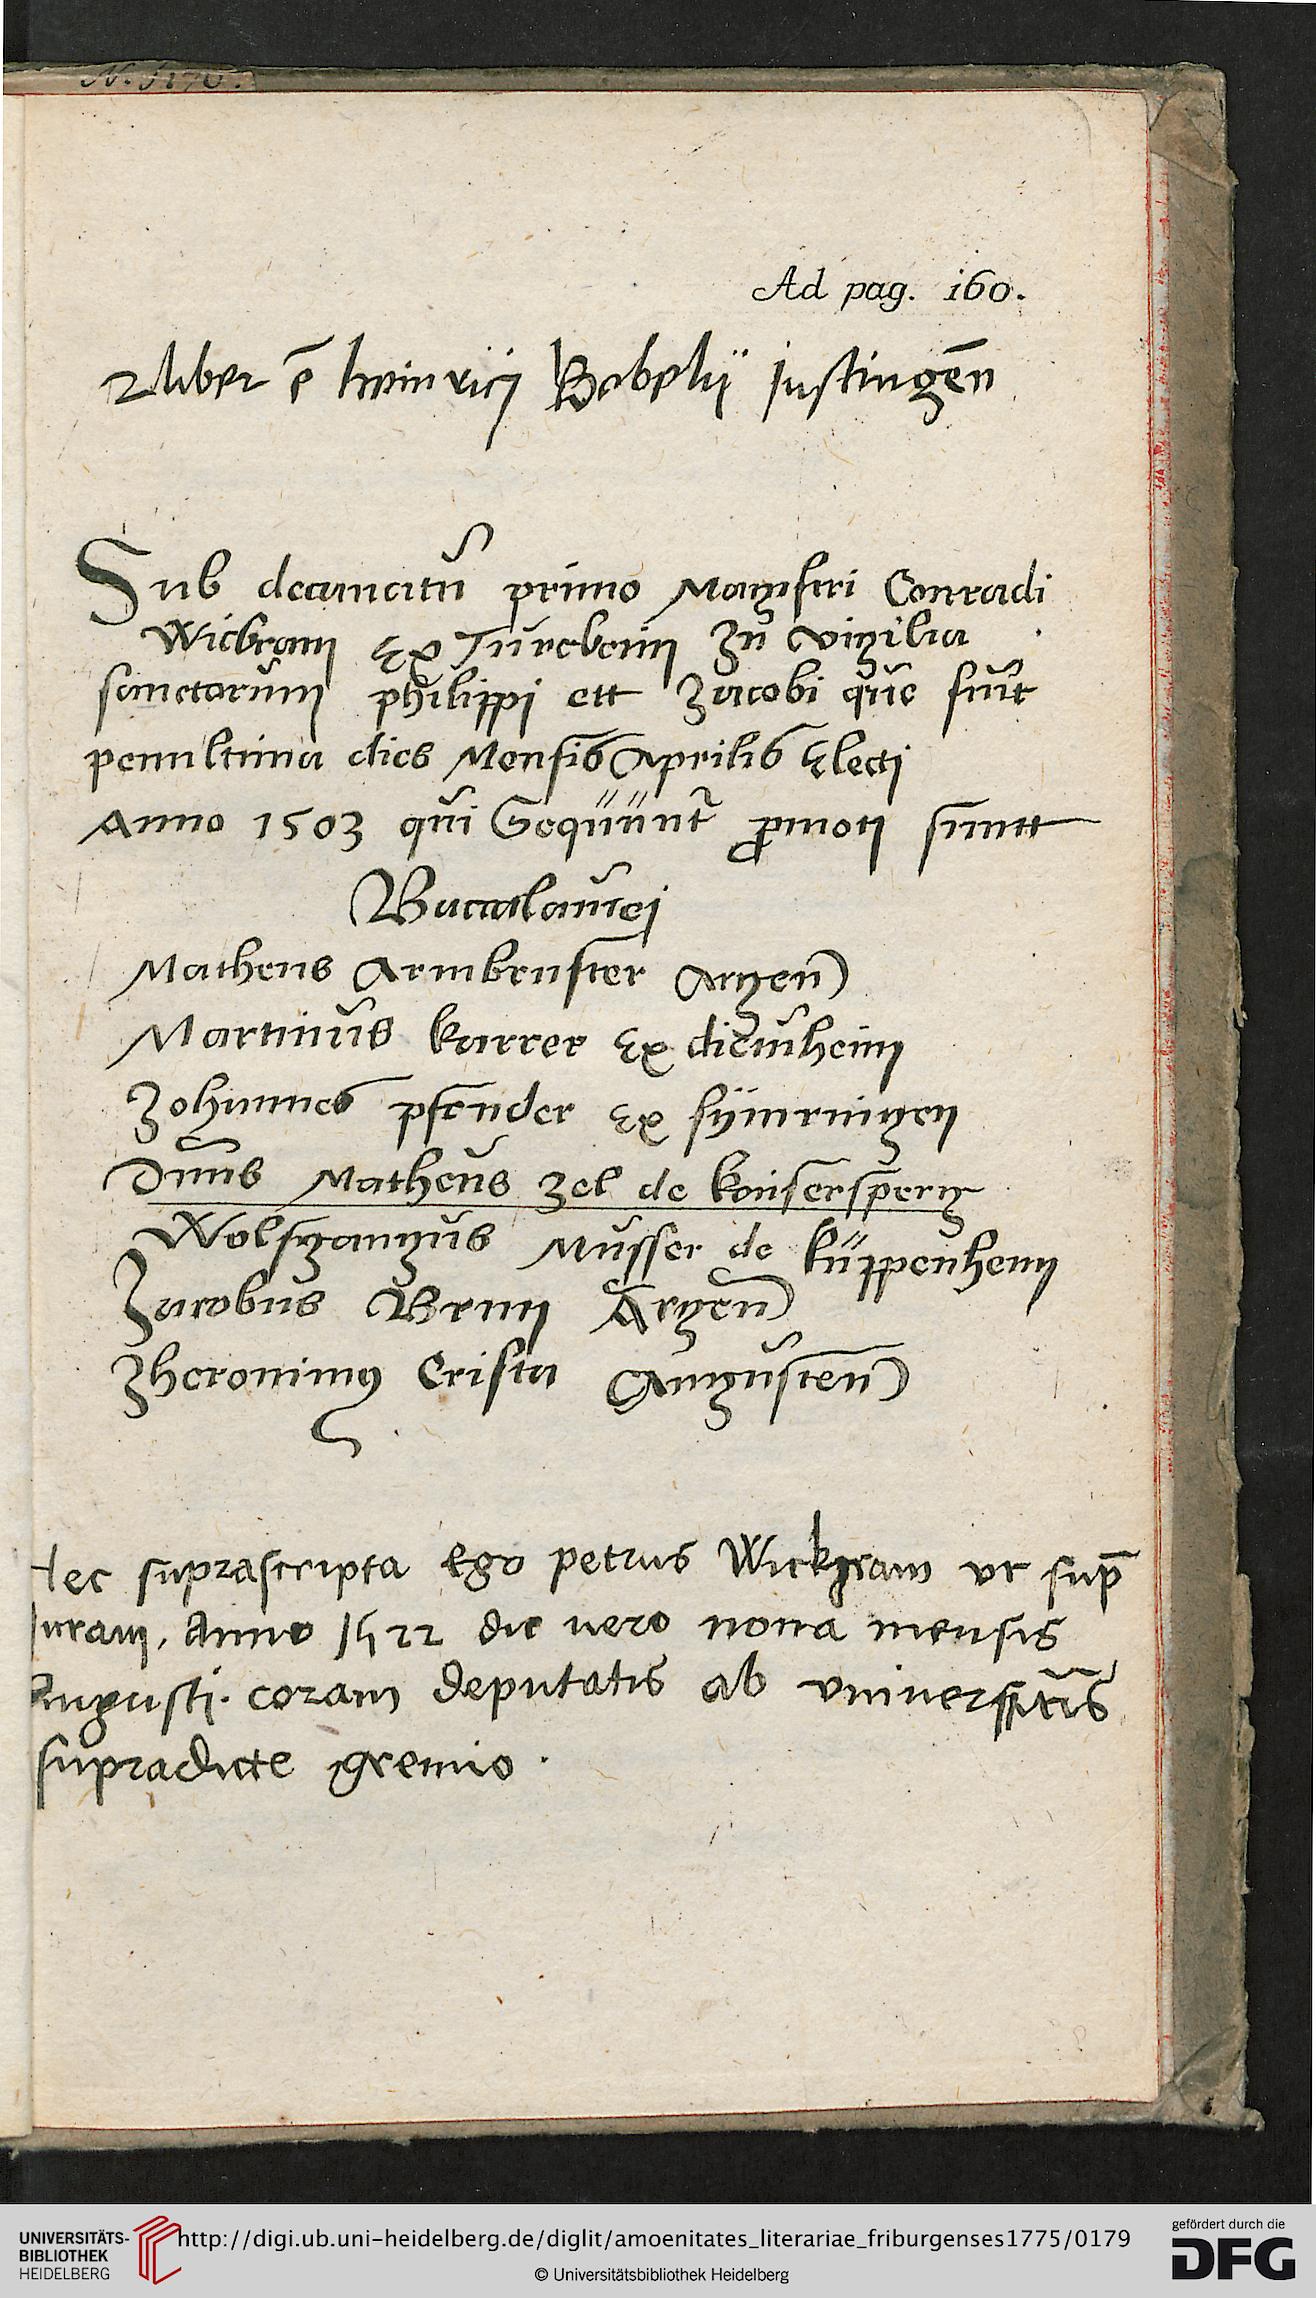 N. 5170.
Ad pag. 160.
liber ē heinricj Bebelij justingēn
Sub decanatu primo Magistri Conradi
Wickram Ex Turckeim In vigilia
sanctorum philippi ett Jacobi que fuit
penultima dies Mensis Aprilis Electi
Anno 1503 qui Sequunt promoti suntt
Baccalaurej
Matheus Armbruster Argen
Martinus karrer Ex
Johannes pfender Ex
Dnus Matheus Zel de keisersperg
Wolfgangus Musser de kuppenhem
Jacobus Brun Argen
Jheronimus Crista Augusten
Hec suprascripta Ego petrus Wickgram vt sup
juram. Anno 1522 die vero nona mensis
Augusti. coram deputatis ab vniuersitatis
supradicte gremio.
UNIVERSITÄTS-
BIBLIOTHEK
HEIDELBERG
http://digi.ub.uni-heidelberg.de/diglit/amoenitates_literariae_friburgenses1775/0179
© Universitätsbibliothek Heidelberg
gefördert durch die
DFG